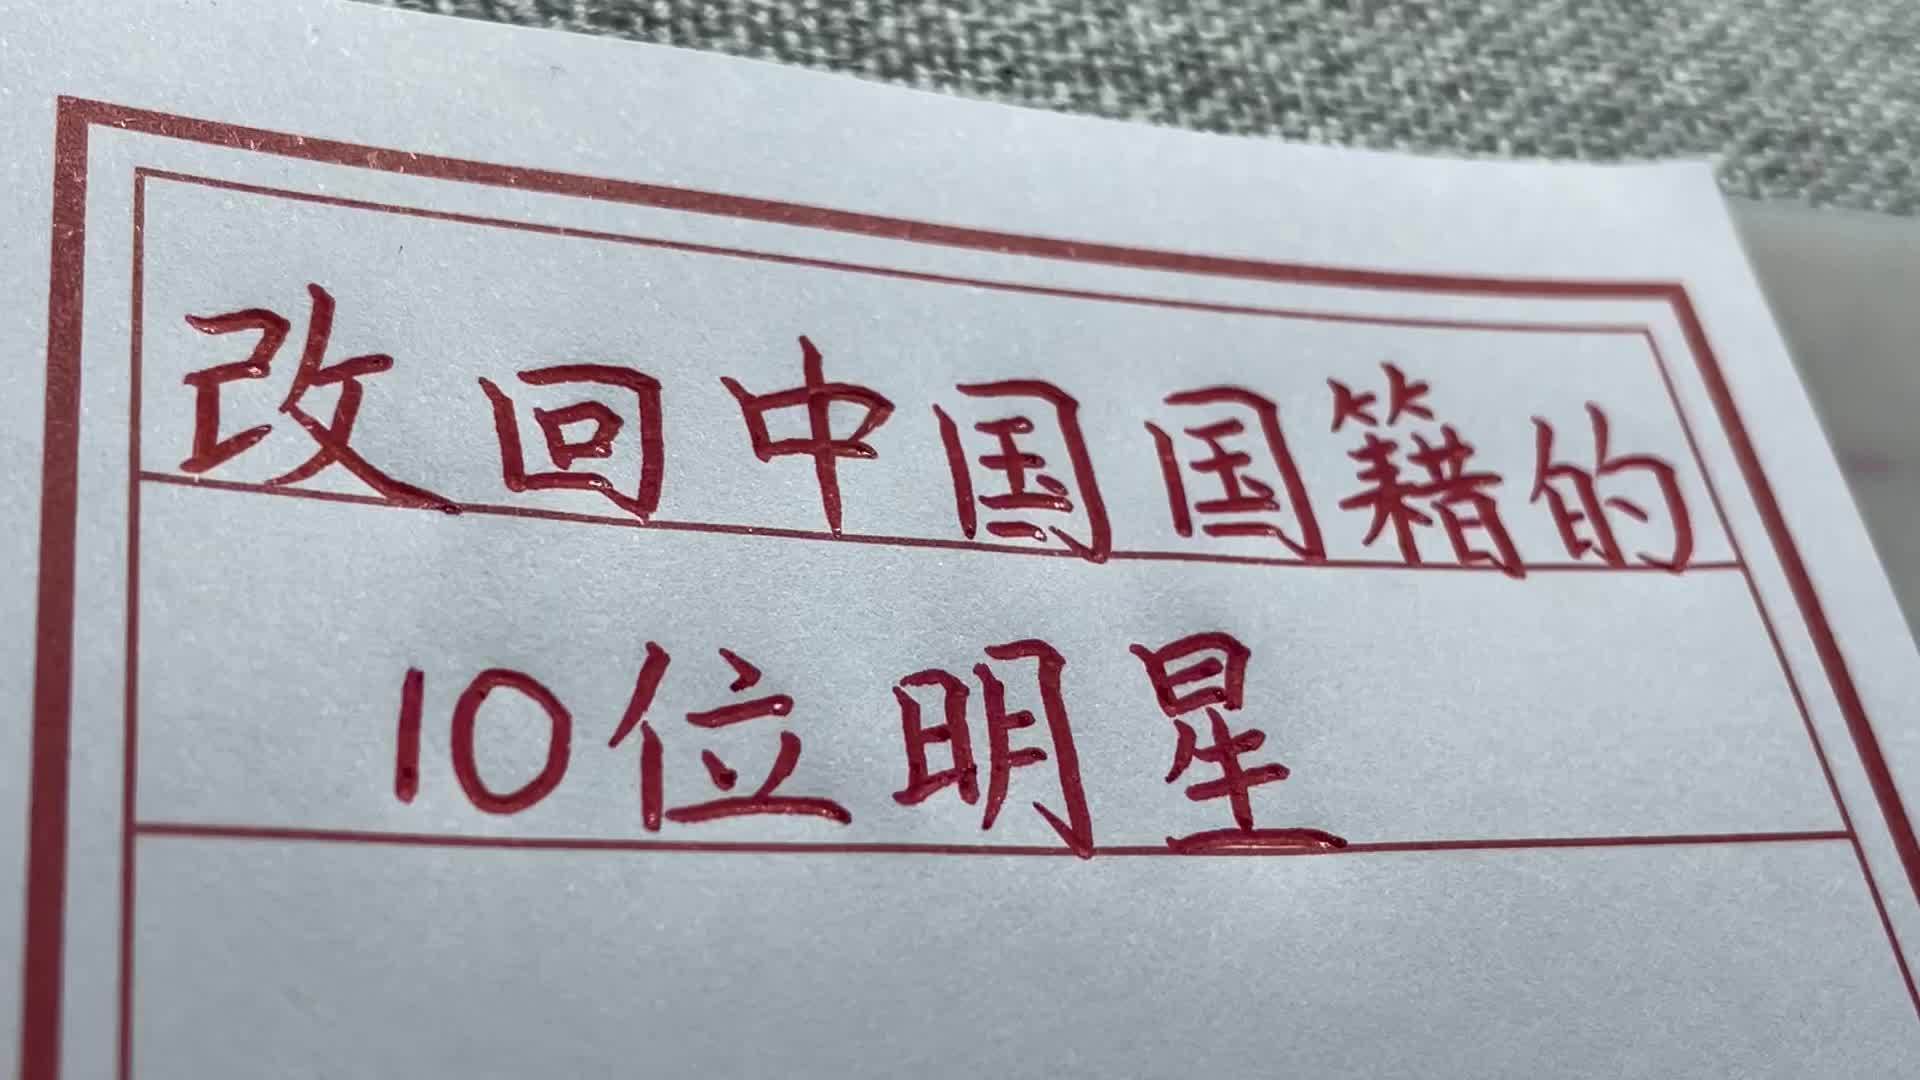 改回中国国籍的
10位明星